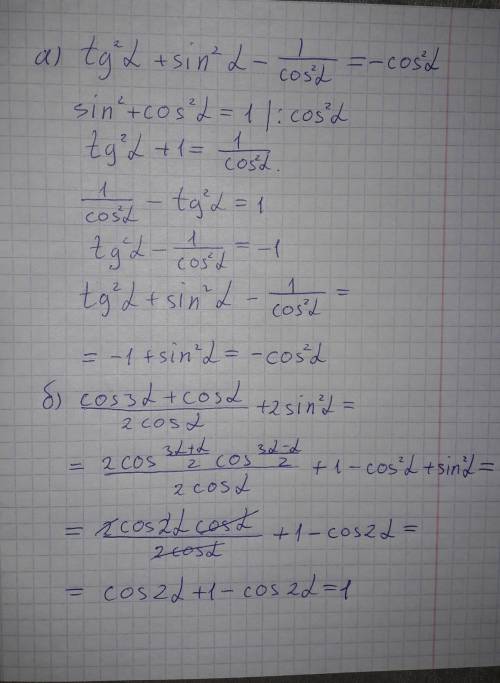 а) tg²α + sin²α - 1/cos²α = -cos²α
sin² + cos²α = 1 |: cos²α
tg²α + 1 = 1/cos²α.
1/cos²α - tg²α = 1
tg²α - 1/cos²α = -1
tg²α + sin²α - 1/cos²α =
= -1 + sin²α = -cos²α
б) (cos3α + cosα)/(2cosα) + 2sin²α =
= (2cos (3α+α)/2 cos (3α-α)/2)/(2cosα) + 1 - cos²α + sin²α =
= (2cos2α cosα)/(2cosα) + 1 - cos2α =
= cos2α + 1 - cos2α = 1